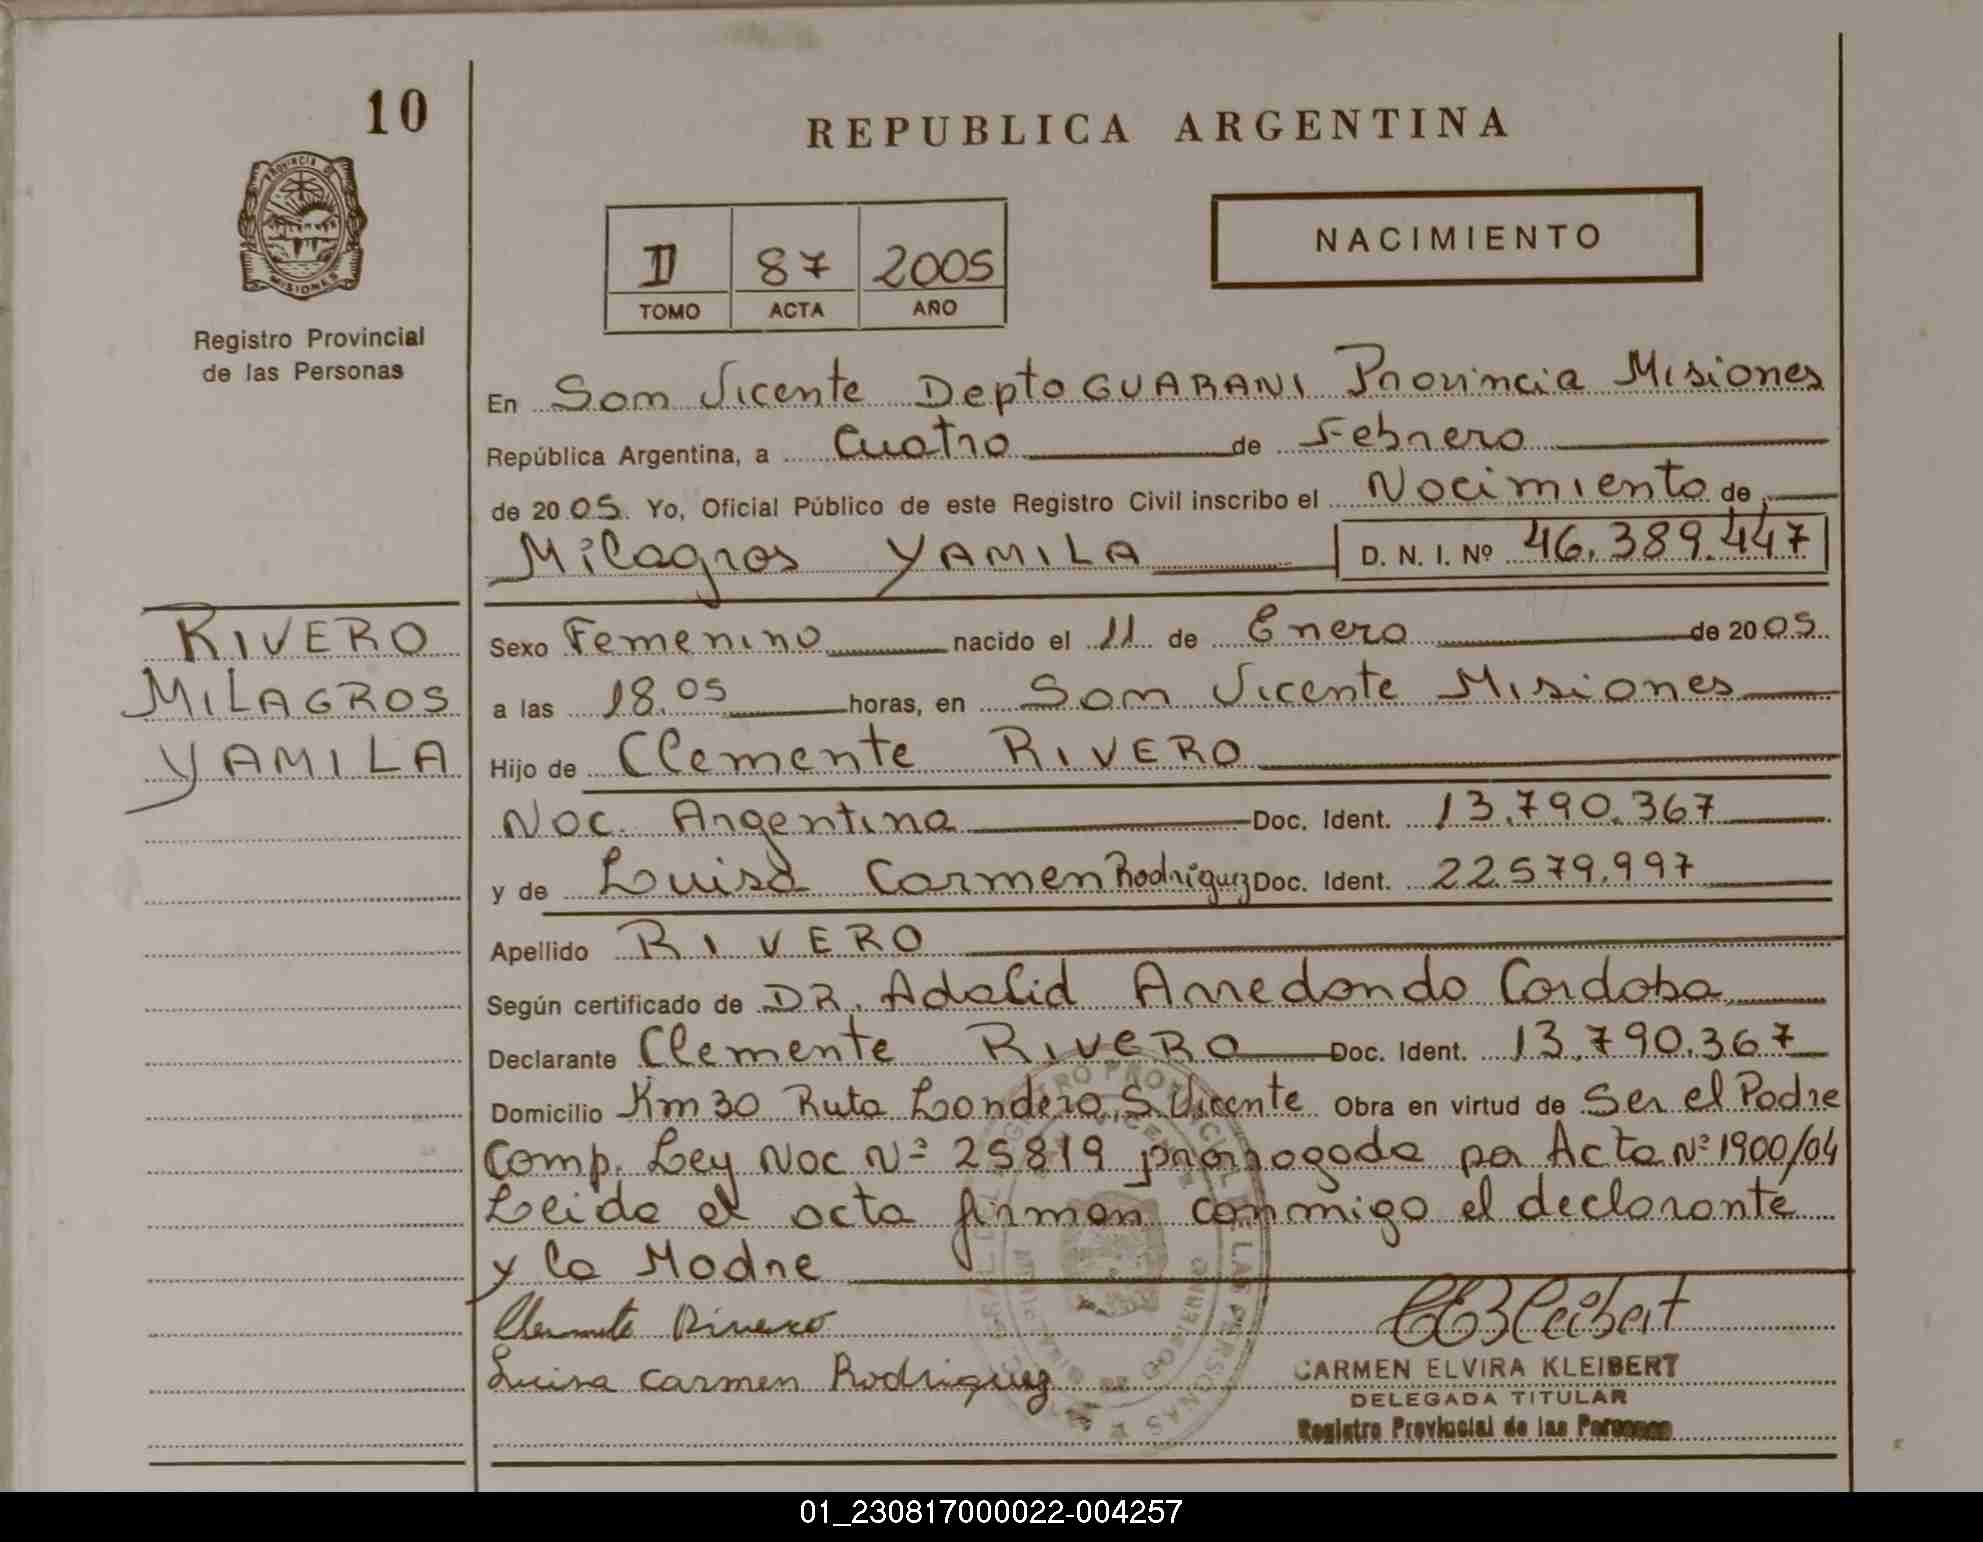 10
REPUBLICA ARGENTINA
PROVINCIA DE
MISIONES
Registro Provincial
de las Personas
II 87 2005
TOMO ACTA AÑO
NACIMIENTO
En San Vicente Depto GUARANI Provincia Misiones
República Argentina, a Cuatro de Febrero
de 2005. Yo, Oficial Público de este Registro Civil inscribo el Nacimiento de
Milagros YAMILA D. N. I. Nº 46.389.447
RIVERO
MILAGROS
YAMILA
Sexo Femenino nacido el 11 de Enero de 2005
a las 18.05 horas, en San Vicente Misiones
Hijo de Clemente RIVERO
Nac. Argentina Doc. Ident. 13.790.367
y de Luisa Carmen Rodriguez Doc. Ident. 22.579.997
Apellido RIVERO
Según certificado de DR. Adalid Arredondo Cordoba
Declarante Clemente RIVERO Doc. Ident. 13.790.367
Domicilio Km 30 Ruta Londero S. Vicente Obra en virtud de Ser el Padre
Comp. Ley Nac Nº 25819 prorrogada por Acta Nº 1900/04
Leida el acta firman conmigo el declarante
y la Madre
Clemente Rivero
Luisa Carmen Rodriguez
CEKleibert
CARMEN ELVIRA KLEIBERT
DELEGADA TITULAR
Registro Provincial de las Personas
01_230817000022-004257